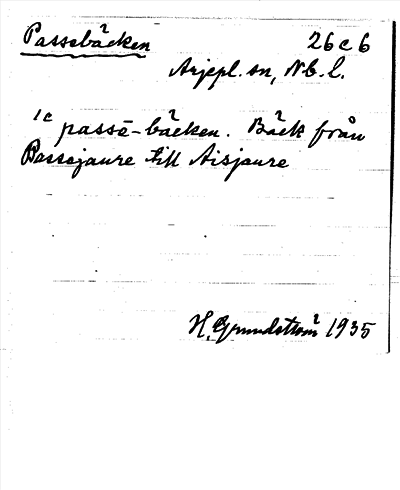 Passebäcken 26c6
Arjepl. sn, Nb. l.
1c passē-bäcken. Bäck från
Passejaure till Aisjaure
H. Grundström 1935